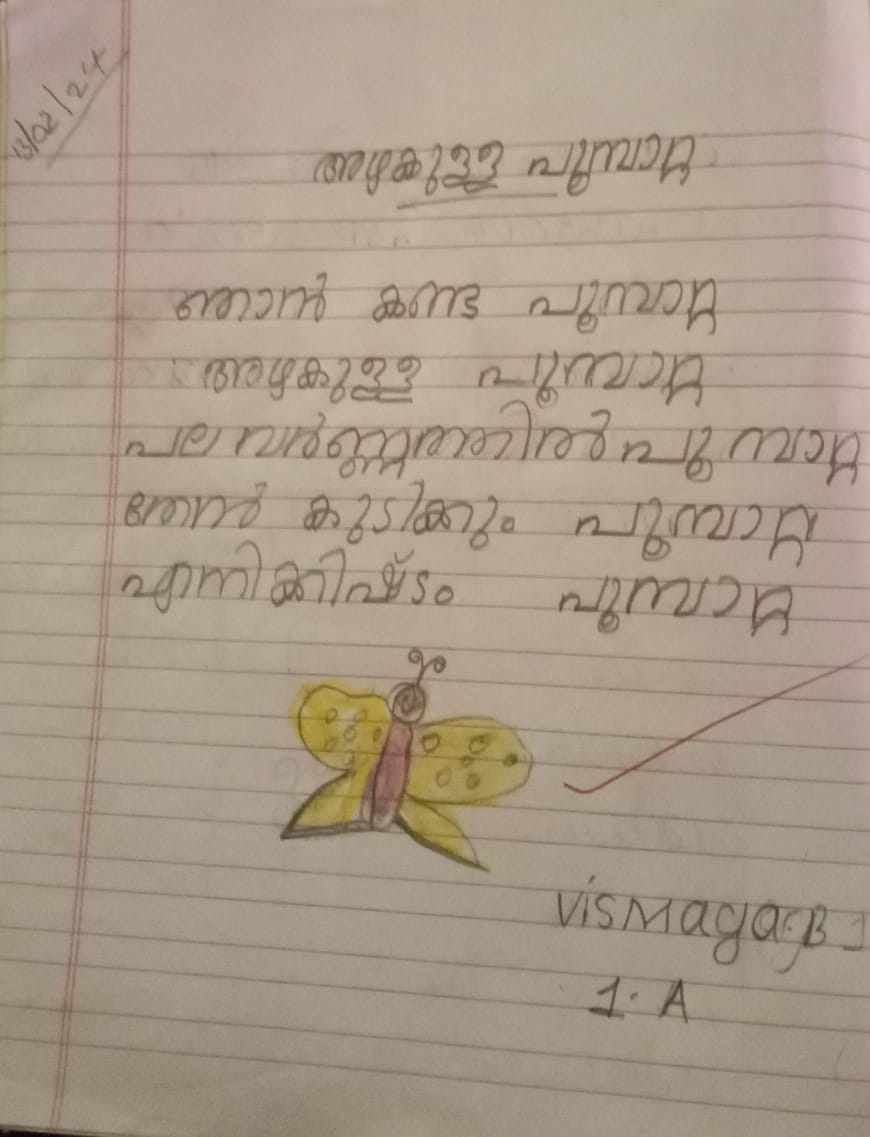 13/02/24
അഴകുള്ള പൂമ്പാറ്റ
ഞാൻ കണ്ട പൂമ്പാറ്റ
അഴകുള്ള പൂമ്പാറ്റ
പല വർണ്ണത്തിൽ പൂമ്പാറ്റ
തേൻ കുടിക്കും പൂമ്പാറ്റ
എനിക്കിഷ്ടം പൂമ്പാറ്റ
1. A